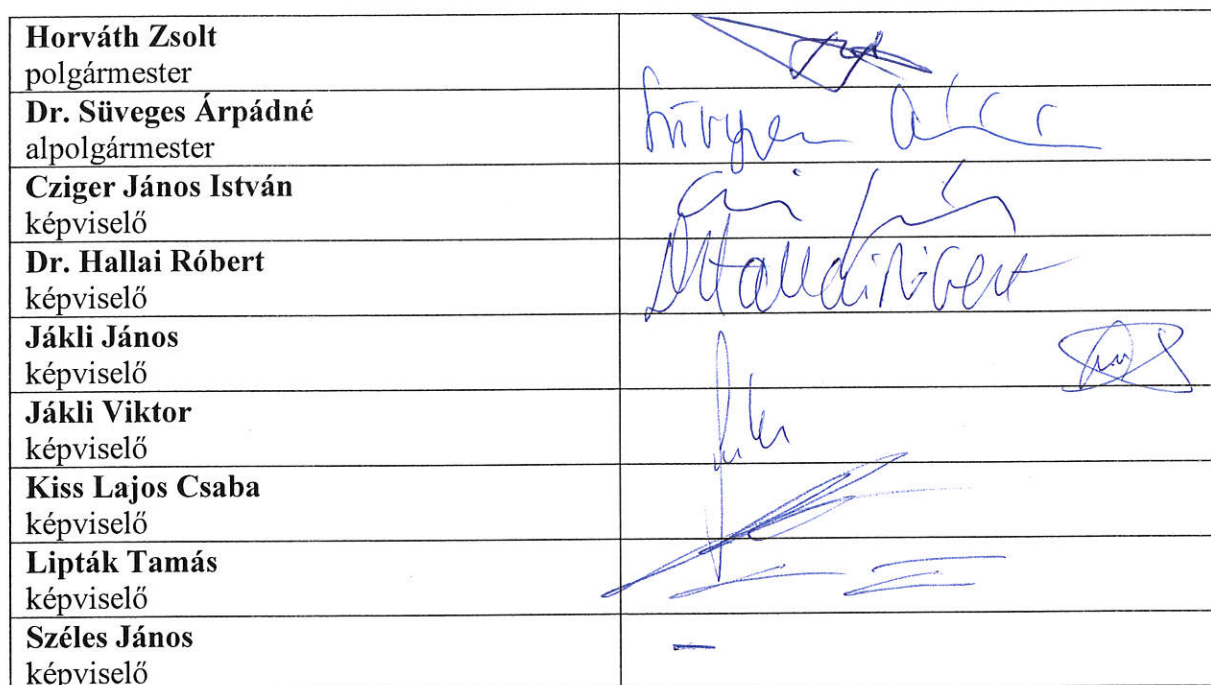 Horváth Zsolt
polgármester
Dr. Süveges Árpádné
alpolgármester
Cziger János István
képviselő
Dr. Hallai Róbert
képviselő
Jákli János
képviselő
Jákli Viktor
képviselő
Kiss Lajos Csaba
képviselő
Lipták Tamás
képviselő
Széles János
képviselő